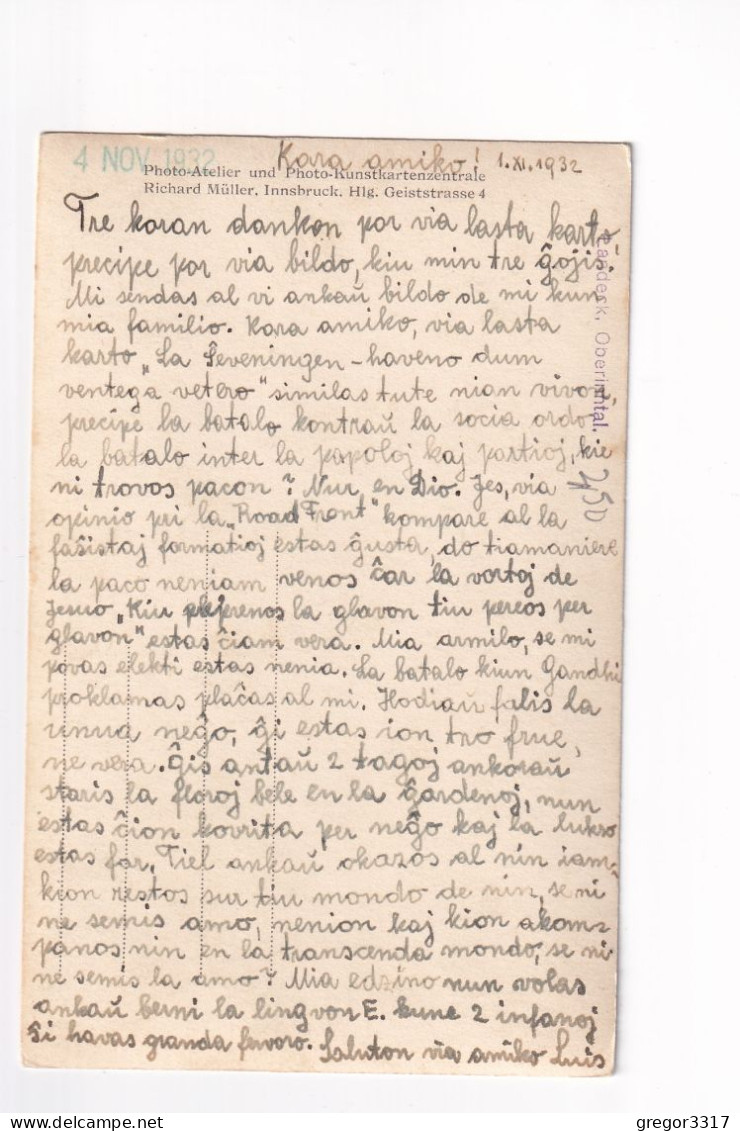 4 NOV 1932
Kara amiko! 1.XI.1932
Photo-Atelier und Photo-Kunstkartenzentrale
Richard Müller, Innsbruck, Hlg. Geiststrasse 4
Tre koran dankon por via lasta karto,
precipe por via bildo, kiu min tre ĝojis.
Mi sendas al vi ankaŭ bildo de mi kun
mia familio. Kara amiko, via lasta
karto „La Ŝeveningen-haveno dum
ventega vetero" similas tute nian vivon,
precipe la batalo kontraŭ la socia ordo,
la batalo inter la papoloj kaj partioj, kie
ni trovos pacon? Nur en Dio. Jes, via
opinio pri la „Road Front" kompare al la
faŝistaj formatioj estas ĝusta, do tiamaniere
la paco neniam venos ĉar la vortoj de
Jesuo „Kiu prenos la glavon tiu pereos per
glavon" estas ĉiam vera. Mia armilo, se mi
povas elekti estas nenia. La batalo kiun Gandhi
proklamas plaĉas al mi. Hodiaŭ falis la
unua neĝo, ĝi estas ion tro frue,
ne vera. Ĝis antaŭ 2 tagoj ankoraŭ
staris la floroj bele en la ĝardenoj, nun
estas ĉion kovrita per neĝo kaj la lukso
estas for. Tiel ankaŭ okazos al nin iam-
kion restos sur tiu mondo de nin, se ni
ne semis amo, nenion kaj kion akom=
panos nin en la transcenda mondo, se ni
ne semis la amo? Mia edzino nun volas
ankaŭ lerni la lingvon E. kune 2 infanoj
Ŝi havas granda fervoro. Saluton via amiko Luis
Landeck, Oberinntal.
2,50
gregor3317